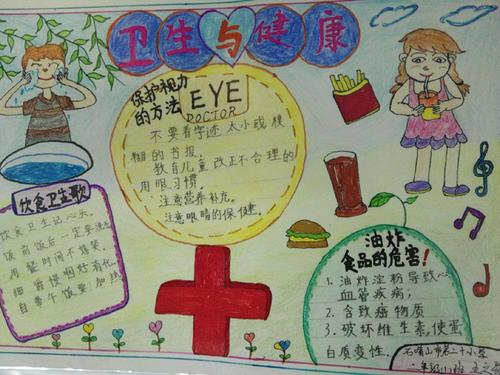 卫生与健康
保护视力
的方法
EYE
DOCTOR
不要看字迹太小或模
糊的书报,
教育儿童改正不合理的
用眼习惯.
注意营养补充.
注意眼睛的保健.
饮食卫生歌
饮食卫生记心头,
饭前饭后一定要洗
用餐时间不嬉笑,
细嚼慢咽好消化
自带午饭要加热
油炸
食品的危害!
1. 油炸淀粉导致心
血管疾病;
2. 含致癌物质
3. 破坏维生素,使蛋
白质变性.
石嘴山市第二十小学